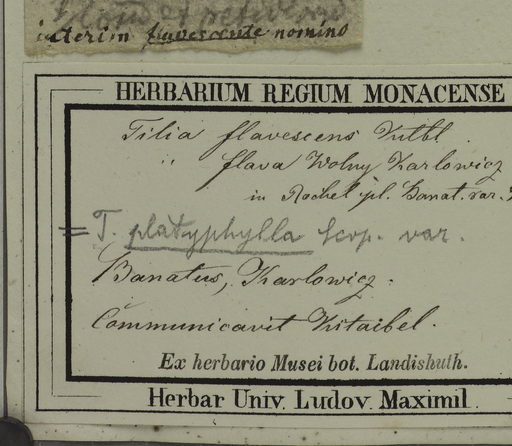 interim flavescente nomino
HERBARIUM REGIUM MONACENSE
Tilia flavescens Kitbl.
" flava Wolny Karlowicz
in Rochel pl. Banat. rar.
= T. platyphylla Scop. var.
Banatus, Karlowicz.
Communicavit Kitaibel.
Ex herbario Musei bot. Landishuth.
Herbar Univ. Ludov. Maximil